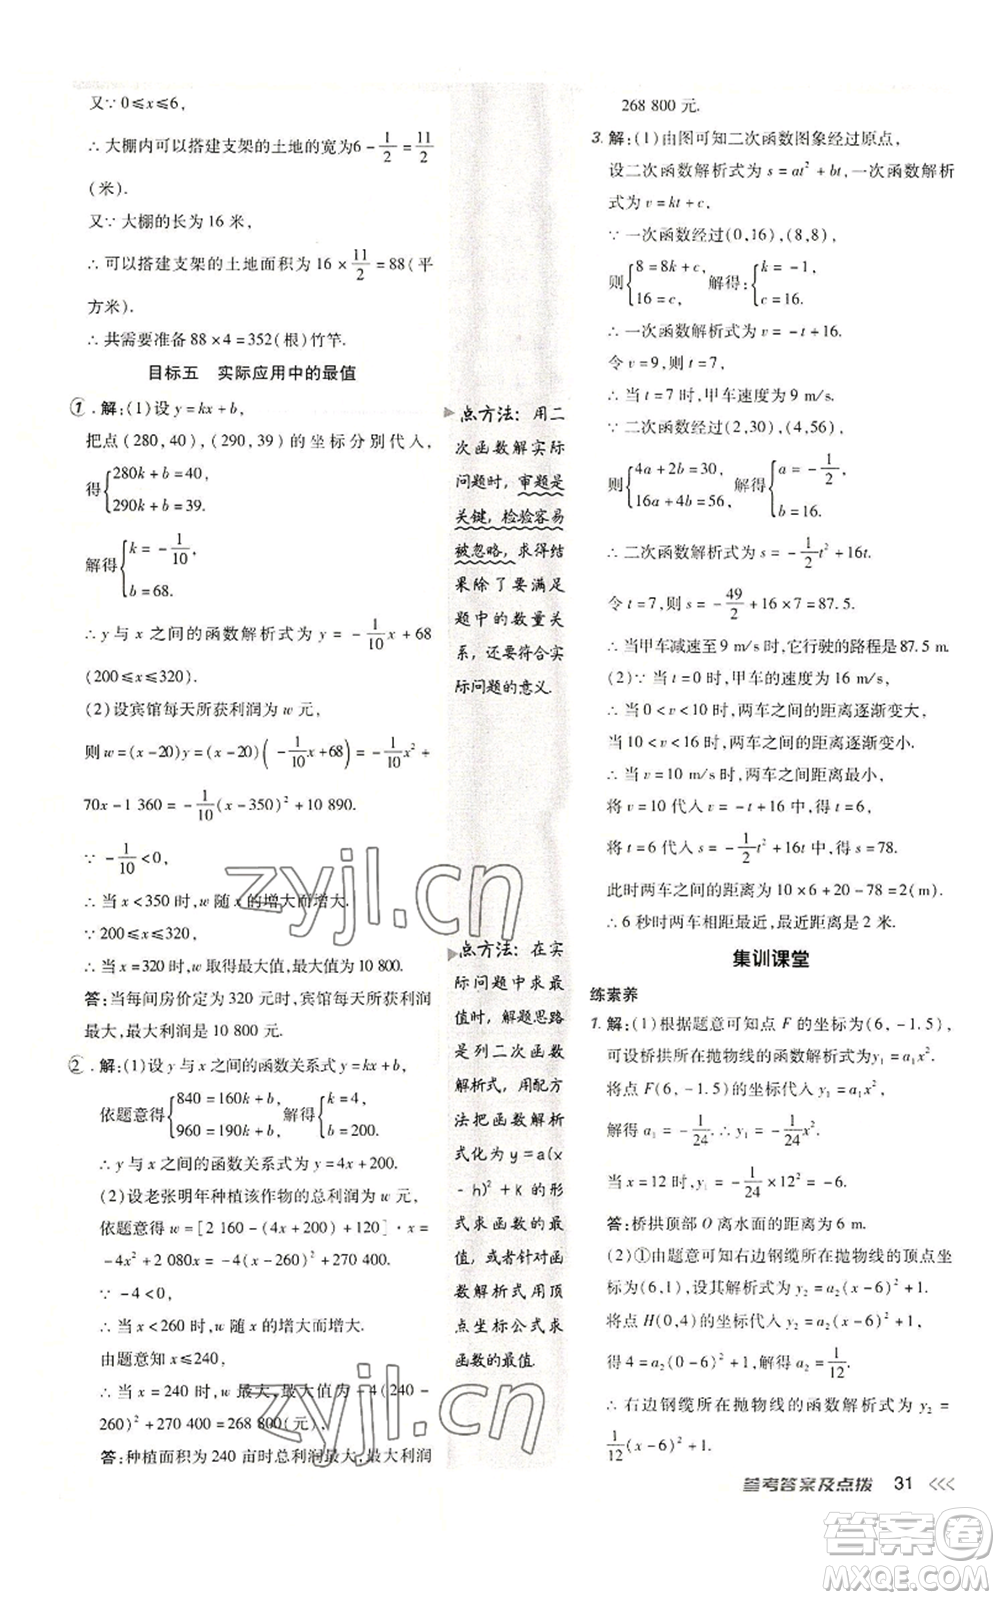 又∵0≤x≤6,
∴大棚内可以搭建支架的土地的宽为6-1/2=11/2
(米).
又∵大棚的长为 16 米,
∴可以搭建支架的土地面积为 16×11/2=88(平
方米).
∴共需要准备 88×4=352(根)竹竿.
目标五 实际应用中的最值
1.解:(1)设 y=kx+b,
把点(280,40),(290,39)的坐标分别代入,
得{280k+b=40,
290k+b=39.
解得{k=-1/10,
b=68.
∴y 与 x 之间的函数解析式为 y=-1/10x+68
(200≤x≤320).
(2)设宾馆每天所获利润为 w 元,
则 w=(x-20)y=(x-20)(-1/10x+68)=-1/10x²+
70x-1 360=-1/10(x-350)²+10 890.
∵-1/10<0,
∴当 x<350 时,w 随 x 的增大而增大.
∵200≤x≤320,
∴当 x=320 时,w 取得最大值,最大值为 10 800.
答:当每间房价定为 320 元时,宾馆每天所获利润
最大,最大利润是 10 800 元.
2.解:(1)设 y 与 x 之间的函数关系式为 y=kx+b,
依题意得{840=160k+b,
960=190k+b,
解得{k=4,
b=200.
∴y 与 x 之间的函数关系式为 y=4x+200.
(2)设老张明年种植该作物的总利润为 w 元,
依题意得 w=[2 160-(4x+200)+120]·x=
-4x²+2 080x=-4(x-260)²+270 400.
∵-4<0,
∴当 x<260 时,w 随 x 的增大而增大.
由题意知 x≤240,
∴当 x=240 时,w 最大,最大值为-4(240-
260)²+270 400=268 800(元),
答:种植面积为 240 亩时总利润最大,最大利润
点方法:用二
次函数解实际
问题时,审题是
关键,检验容易
被忽略,求得结
果除了要满足
题中的数量关
系,还要符合实
际问题的意义.
点方法:在实
际问题中求最
值时,解题思路
是列二次函数
解析式,用配方
法把函数解析
式化为 y=a(x
-h)²+k 的形
式求函数的最
值,或者针对函
数解析式用顶
点坐标公式求
函数的最值.
268 800 元.
3.解:(1)由图可知二次函数图象经过原点,
设二次函数解析式为 s=at²+bt,一次函数解析
式为 v=kt+c,
∵一次函数经过(0,16),(8,8),
则{8=8k+c,
16=c,
解得:{k=-1,
c=16.
∴一次函数解析式为 v=-t+16.
令 v=9,则 t=7,
∴当 t=7 时,甲车速度为 9 m/s.
∵二次函数经过(2,30),(4,56),
则{4a+2b=30,
16a+4b=56,
解得{a=-1/2,
b=16.
∴二次函数解析式为 s=-1/2t²+16t.
令 t=7,则 s=-49/2+16×7=87.5.
∴当甲车减速至 9 m/s 时,它行驶的路程是 87.5 m.
(2)∵当 t=0 时,甲车的速度为 16 m/s,
∴当 0<v<10 时,两车之间的距离逐渐变大,
当 10<v<16 时,两车之间的距离逐渐变小.
∴当 v=10 m/s 时,两车之间距离最小,
将 v=10 代入 v=-t+16 中,得 t=6,
将 t=6 代入 s=-1/2t²+16t 中,得 s=78.
此时两车之间的距离为 10×6+20-78=2(m).
∴6 秒时两车相距最近,最近距离是 2 米.
集训课堂
练素养
1.解:(1)根据题意可知点 F 的坐标为(6,-1.5),
可设桥拱所在抛物线的函数解析式为y₁=a₁x².
将点 F(6,-1.5)的坐标代入 y₁=a₁x²,
解得 a₁=-1/24.∴y₁=-1/24x².
当 x=12 时,y₁=-1/24×12²=-6.
答:桥拱顶部 O 离水面的距离为 6 m.
(2)①由题意可知右边钢缆所在抛物线的顶点坐
标为(6,1),设其解析式为 y₂=a₂(x-6)²+1,
将点 H(0,4)的坐标代入 y₂=a₂(x-6)²+1,
得 4=a₂(0-6)²+1,解得 a₂=1/12.
∴右边钢缆所在抛物线的函数解析式为 y₂=
1/12(x-6)²+1.
参考答案及点拨 31
zyjl.cn
zyjl.cn
答案卷
MXQE.COM